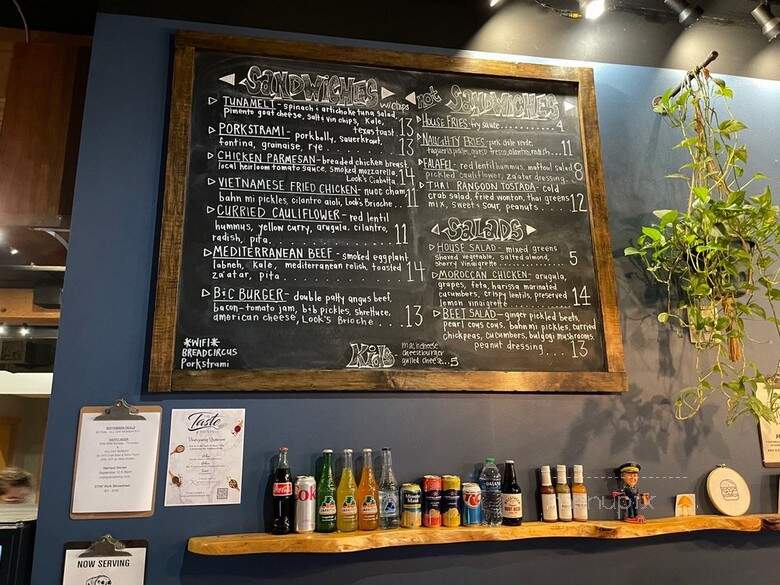 SANDWICHES
TUNAMELT - spinach + artichoke tuna salad,
pimento goat cheese, salt + vin chips, kale,
texas toast. 13
PORKSTRAMI - porkbelly, sauerkraut,
fontina, grainaise, rye 13
CHICKEN PARMESAN - breaded chicken breast,
local heirloom tomato sauce, smoked mozzarella,
Look's Ciabatta 14
VIETNAMESE FRIED CHICKEN - nuoc cham,
bahn mi pickles, cilantro aioli, Look's Brioche... 11
CURRIED CAULIFLOWER - red lentil
hummus, yellow curry, arugula, cilantro,
radish, pita 11
MEDITERRANEAN BEEF - smoked eggplant
labneh, kale, mediterranean relish, toasted
za'atar, pita 14
B+C BURGER - double patty angus beef,
bacon-tomato jam, b+b pickles, shrettuce,
american cheese, Look's Brioche... 13
*WIFI*
BREADCIRCUS
Porkstrami
Kids
mac n cheese
cheeseburger
grilled cheese...5
not SANDWICHES
HOUSE FRIES - fry sauce 4
NAUGHTY FRIES - pork chile verde,
taqueria pickles, queso fresco, cilantro, radish... 11
FALAFEL - red lentil hummus, maftoul salad,
pickled cauliflower, za'atar dressing 8
THAI RANGOON TOSTADA - cold
crab salad, fried wonton, thai greens
mix, sweet + sour, peanuts 12
SALADS
HOUSE SALAD - mixed greens
shaved vegetable, salted almond,
sherry vinaigrette 5
MOROCCAN CHICKEN - arugula,
grapes, feta, harissa marinated
cucumbers, crispy lentils, preserved
lemon vinaigrette 14
BEET SALAD - ginger pickled beets,
pearl cous cous, bahn mi pickles, curried
chickpeas, cucumbers, bulgogi mushrooms
peanut dressing.... 13
Taste
NOW SERVING
Coca-Cola
Coke
Minute Maid
menupix